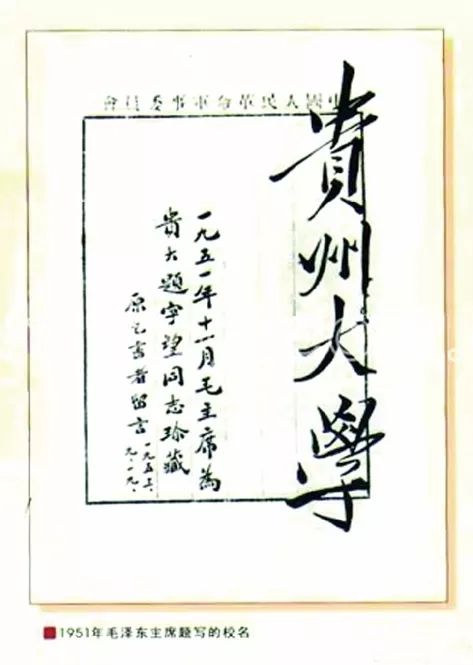 中國人民革命軍事委員會
貴州大學
一九五一年十一月毛主席為
貴大題字望同志珍藏
原乞書者留言
九、一九、
1951年毛泽东主席题写的校名